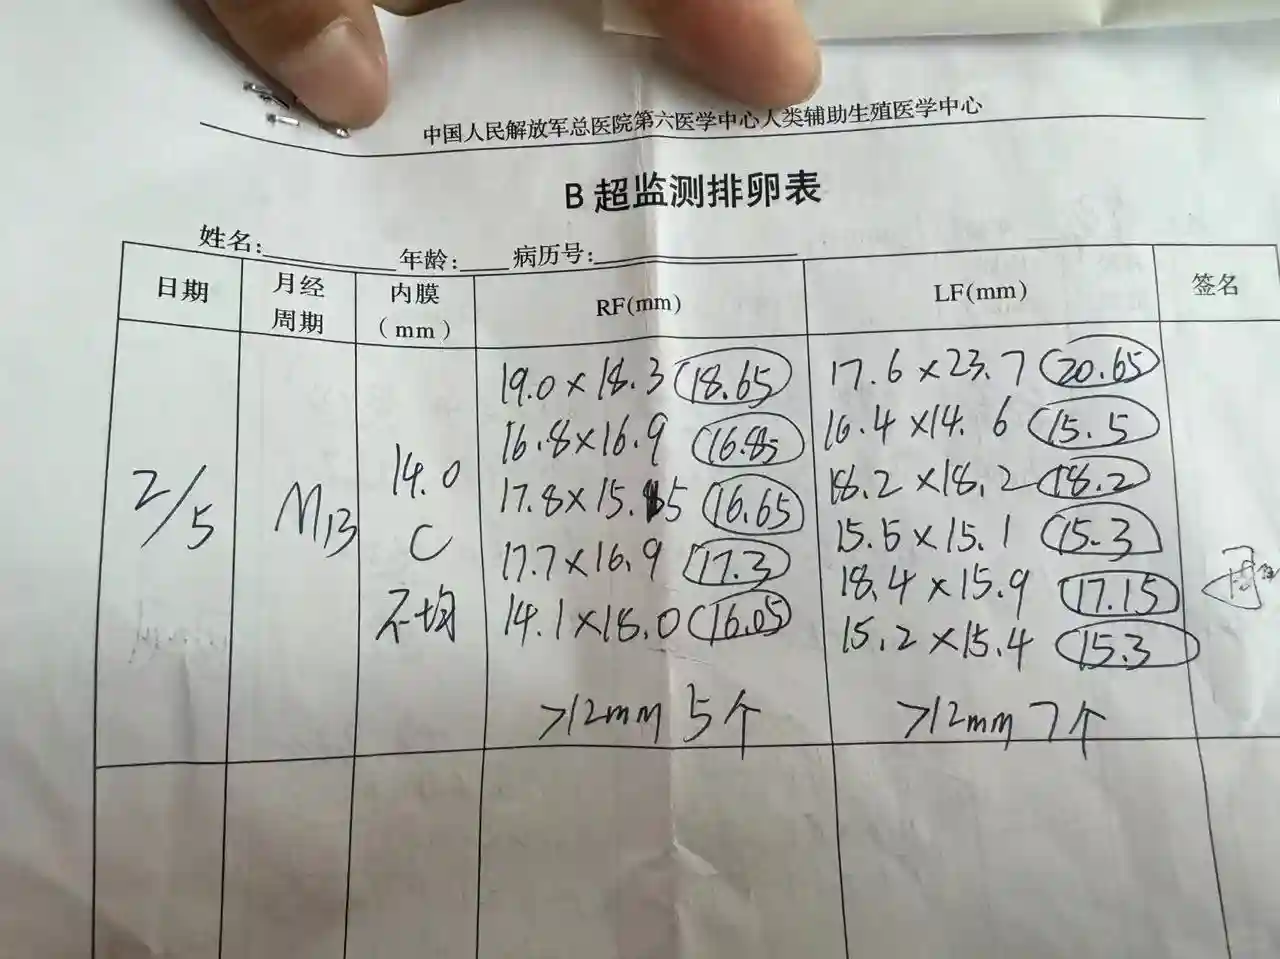 中国人民解放军总医院第六医学中心人类辅助生殖医学中心
B 超监测排卵表
姓名: 年龄: 病历号:
日期 月经周期 内膜(mm) RF(mm) LF(mm) 签名
2/5 M13 14.0 C 不均
19.0×18.3 18.65
16.8×16.9 16.85
17.8×15.5 16.65
17.7×16.9 17.3
14.1×18.0 16.05
>12mm 5个
17.6×23.7 20.65
16.4×14.6 15.5
18.2×18.2 18.2
15.5×15.1 15.3
18.4×15.9 17.15
15.2×15.4 15.3
>12mm 7个